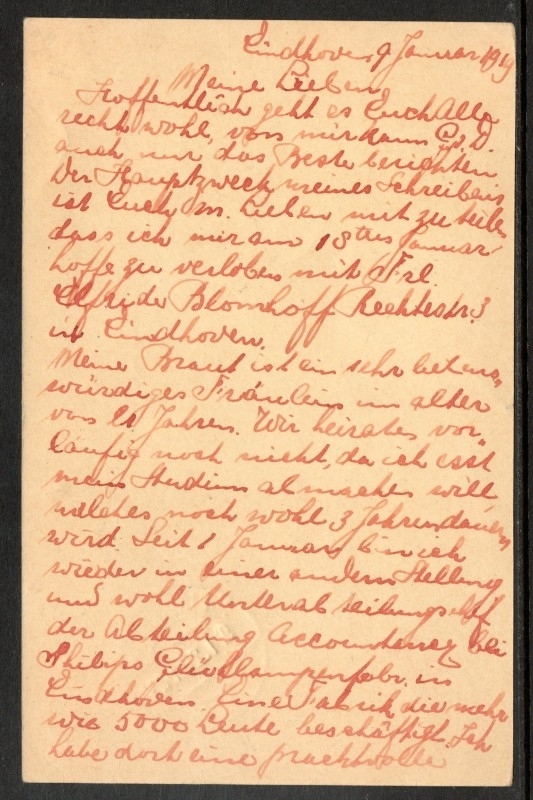 Eindhoven 9 Januar 1919
Meine Lieben,
Hoffentlich geht es Euch Alle
recht wohl, von mir kann G. s. D.
auch nur das Beste berichten
Der Hauptzweck meines Schreibens
ist Euch m. Lieben mit zu teilen
dass ich mir am 18ten Januar
hoffe zu verloben mit Frl.
Elfride Blomhoff Rechtestr. 3
in Eindhoven.
Meine Braut ist ein sehr liebens„
würdiges Fräulein im alter
von Jahren. Wir heiraten vor„
laufig noch nicht, da ich erst
mein Studium abmachen will,
welches noch wohl 3 Jahren dauern
wird. Seit 1 Januar bin ich
wieder in einer andern Stellung
und wohl Unterabteilungschef
der Abteilung Accountancy bei
Philips Glühlampenfabr. in
Eindhoven. Eine Fabrik die mehr
wie 5000 Leute beschäftigt. Ich
habe doch eine prachtvolle